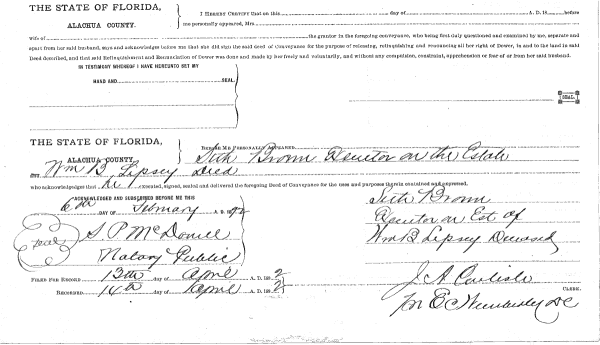 THE STATE OF FLORIDA,
ALACHUA COUNTY.
I HEREBY CERTIFY that on this day of A. D. 18 before
me personally appeared, Mrs.
wife of the grantor in the foregoing conveyance, who being first duly questioned and examined by me, separate and
apart from her said husband, says and acknowledges before me that she did sign the said deed of Conveyance for the purpose of releasing, relinquishing and renouncing all her right of Dower, in and to the land in said
Deed described, and that said Relinquishment and Renunciation of Dower was done and made by her freely and voluntarily, and without any compulsion, constraint, apprehension or fear of or from her said husband.
IN TESTIMONY WHEREOF I HAVE HEREUNTO SET MY
HAND AND SEAL.
SEAL.
THE STATE OF FLORIDA,
ALACHUA COUNTY.
BEFORE ME PERSONALLY APPEARED
Seth Brown Executor on the Estate
Wm B Lipsey Dec'd
who acknowledges that he executed, signed, sealed and delivered the foregoing Deed of Conveyance for the uses and purposes therein contained and expressed.
ACKNOWLEDGED AND SUBSCRIBED BEFORE ME THIS
6th DAY OF February A. D. 1892
Seal
S. P. McDowell
Notary Public
Seth Brown
Executor on Est of
Wm B Lipsey Deceased
FILED FOR RECORD 13th day of April A. D. 1892
RECORDED 14th day of April A. D. 1892
J A Carlisle
CLERK.
pr E C Wimberley DC